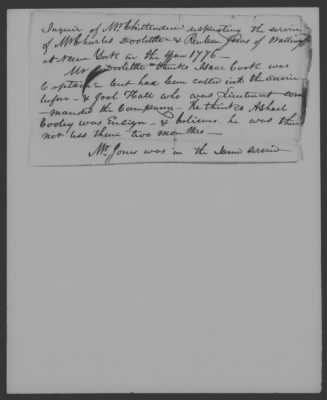 Inquir of Mr. Chittenden respecting the service
of Mr Charles Doolittle & Reuben Jones of Walling
at New York in the Year 1776 —
Mr Doolittle thinks Isaac Cook was
Captain but had been called into the Service
before - & Joel Hall who was Lieutenant com
manded the Company - He thinks Asahel
Cooley was Ensign - & believes he was there
not less than two months —
Mr. Jones was in the same service